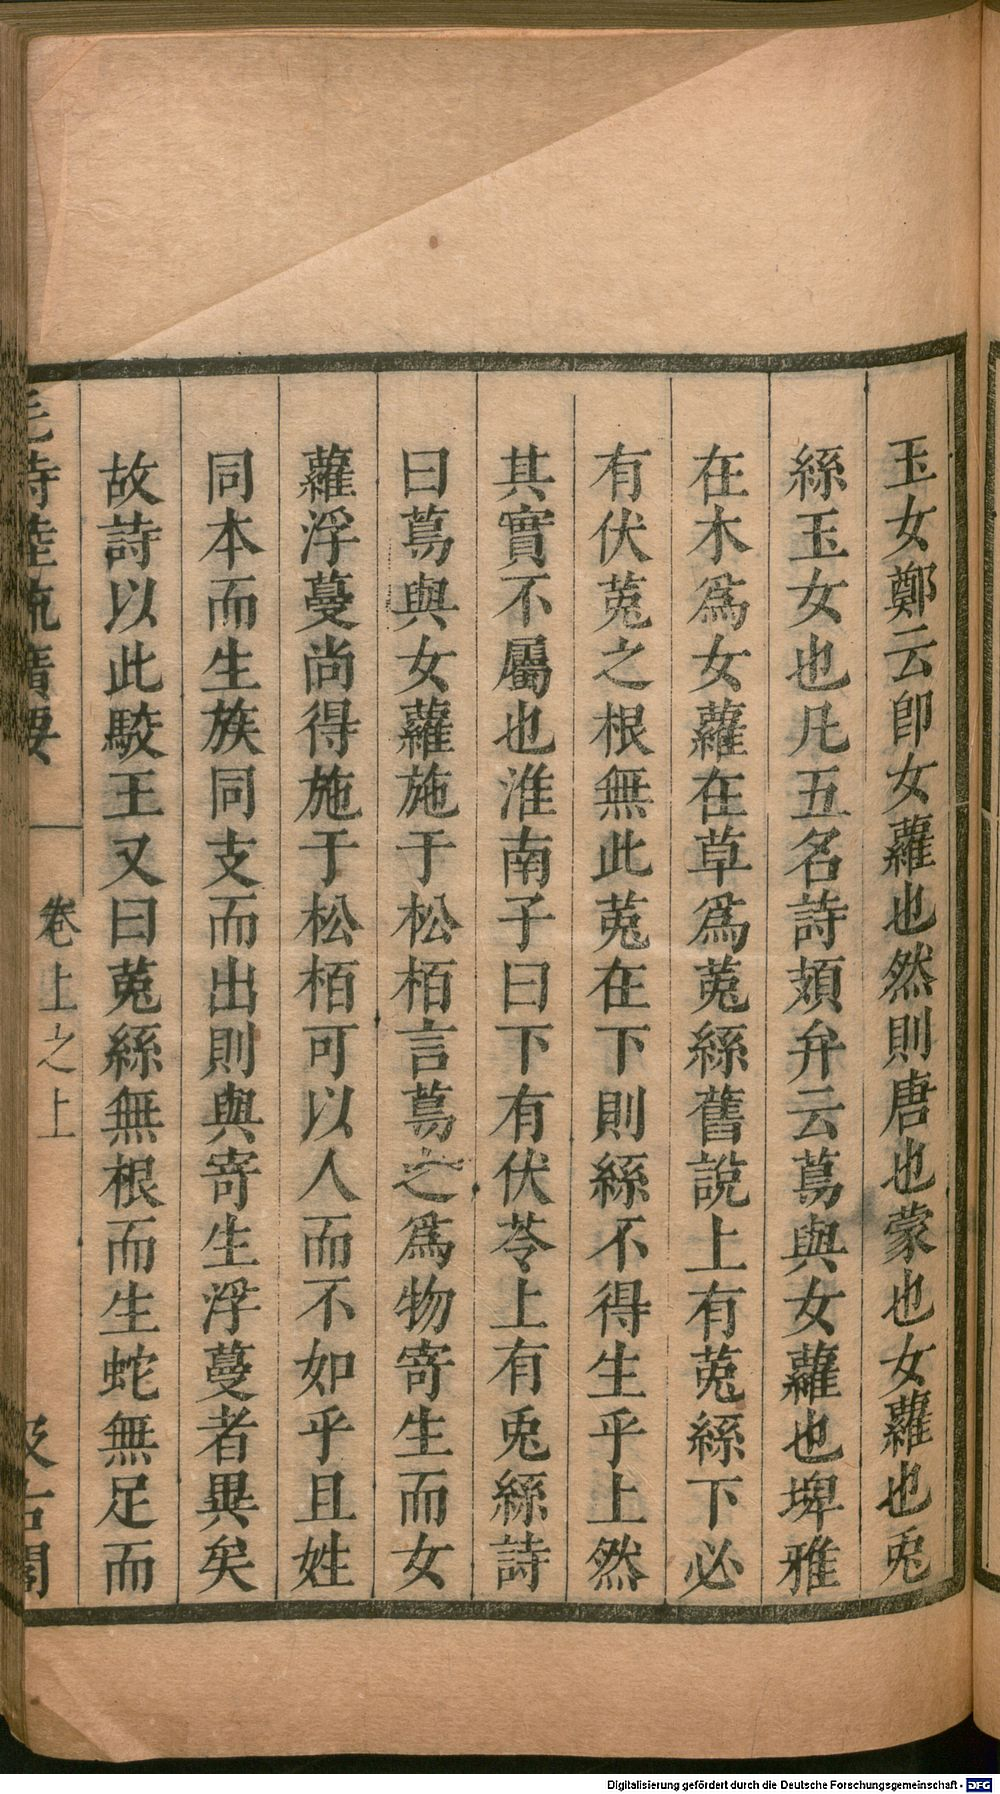 玉女鄭云卽女蘿也然則唐也蒙也女蘿也兎
絲玉女也凡五名詩頍弁云蔦與女蘿也埤雅
在木爲女蘿在草爲菟絲舊說上有菟絲下必
有伏菟之根無此菟在下則絲不得生乎上然
其實不屬也淮南子曰下有伏苓上有兎絲詩
曰蔦與女蘿施于松栢言蔦之爲物寄生而女
蘿浮蔓尚得施于松栢可以人而不如乎且姓
同本而生族同支而出則與寄生浮蔓者異矣
故詩以此駮王又曰菟絲無根而生蛇無足而
毛詩陸疏廣要 卷上之上 汲古閣
Digitalisierung gefördert durch die Deutsche Forschungsgemeinschaft - DFG